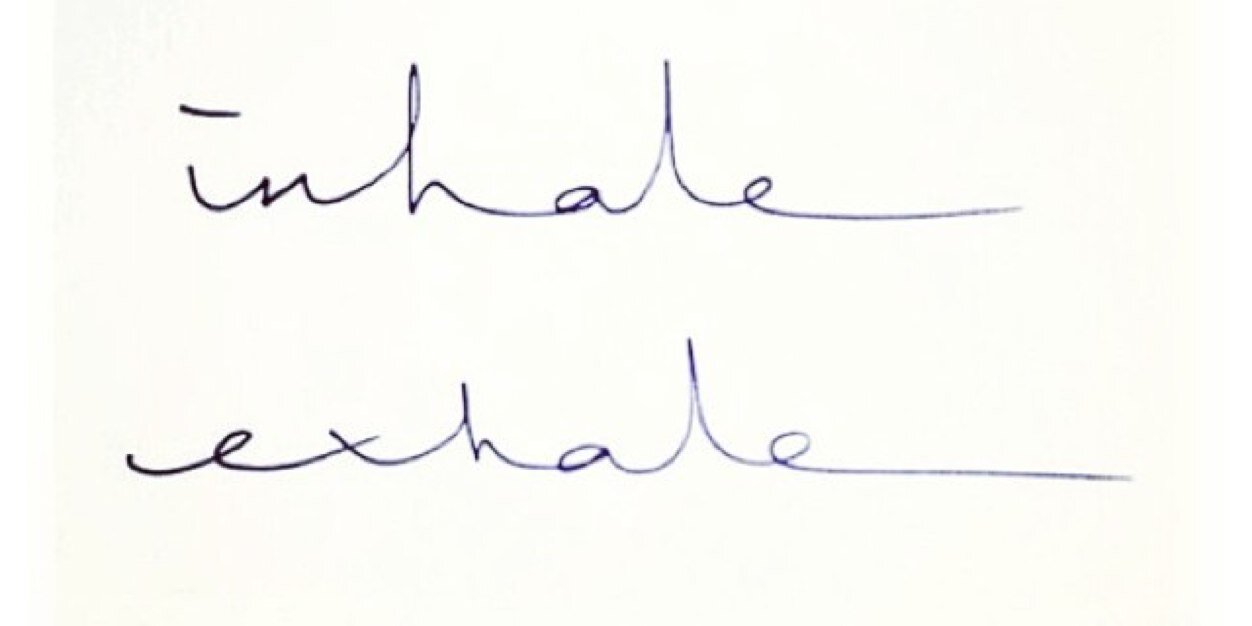 inhale
exhale